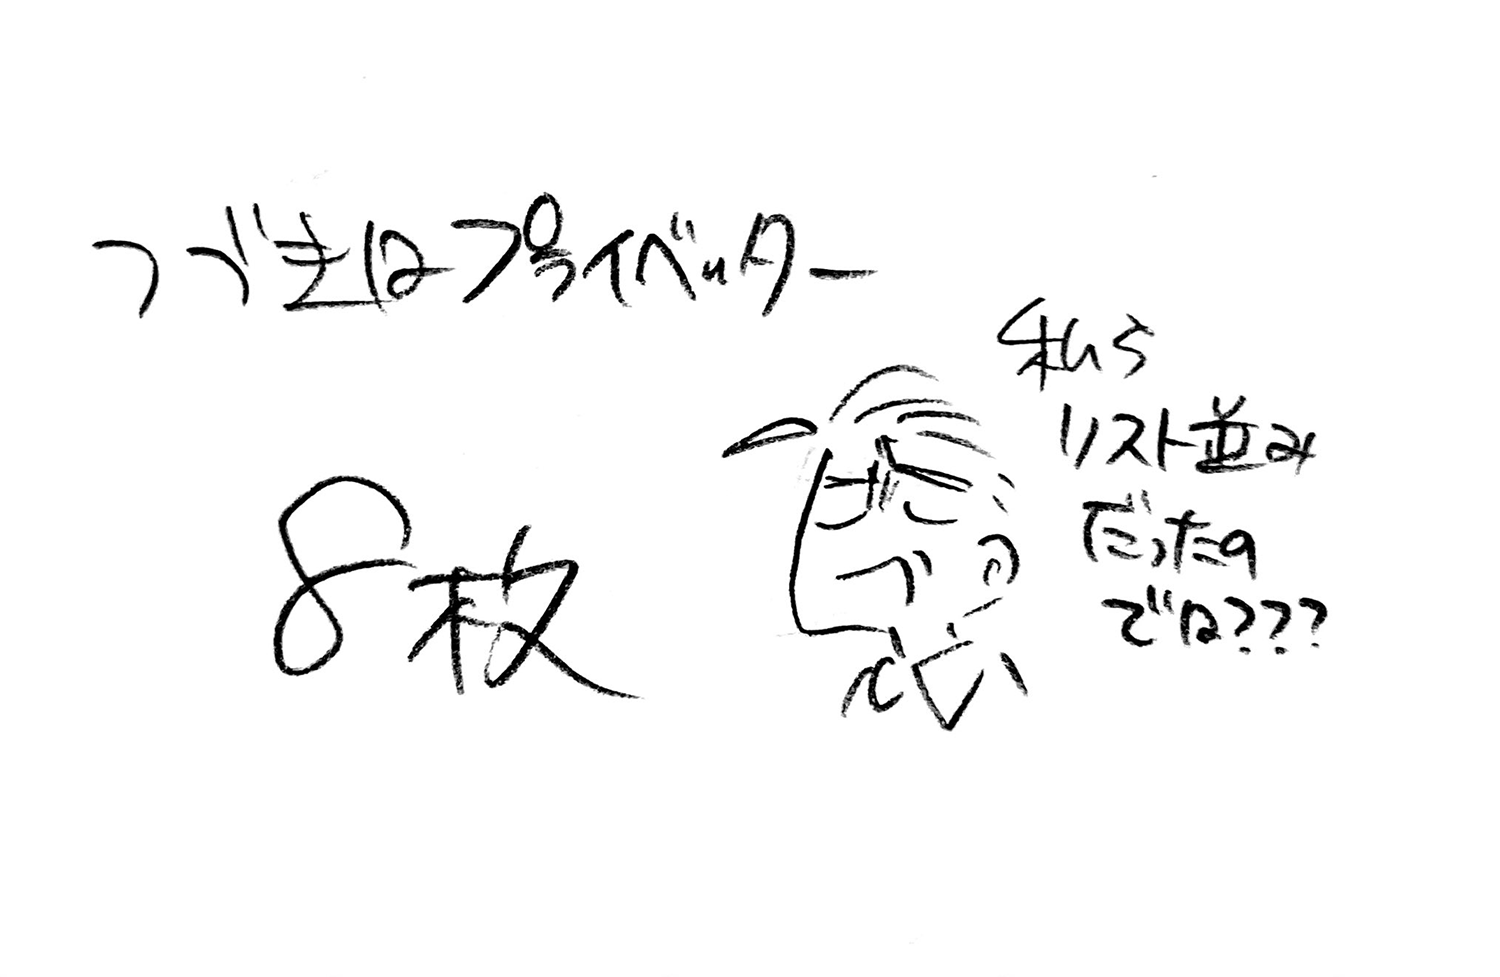 つづきはプライベッター
8枚
私ら
リスト並み
だったの
では???